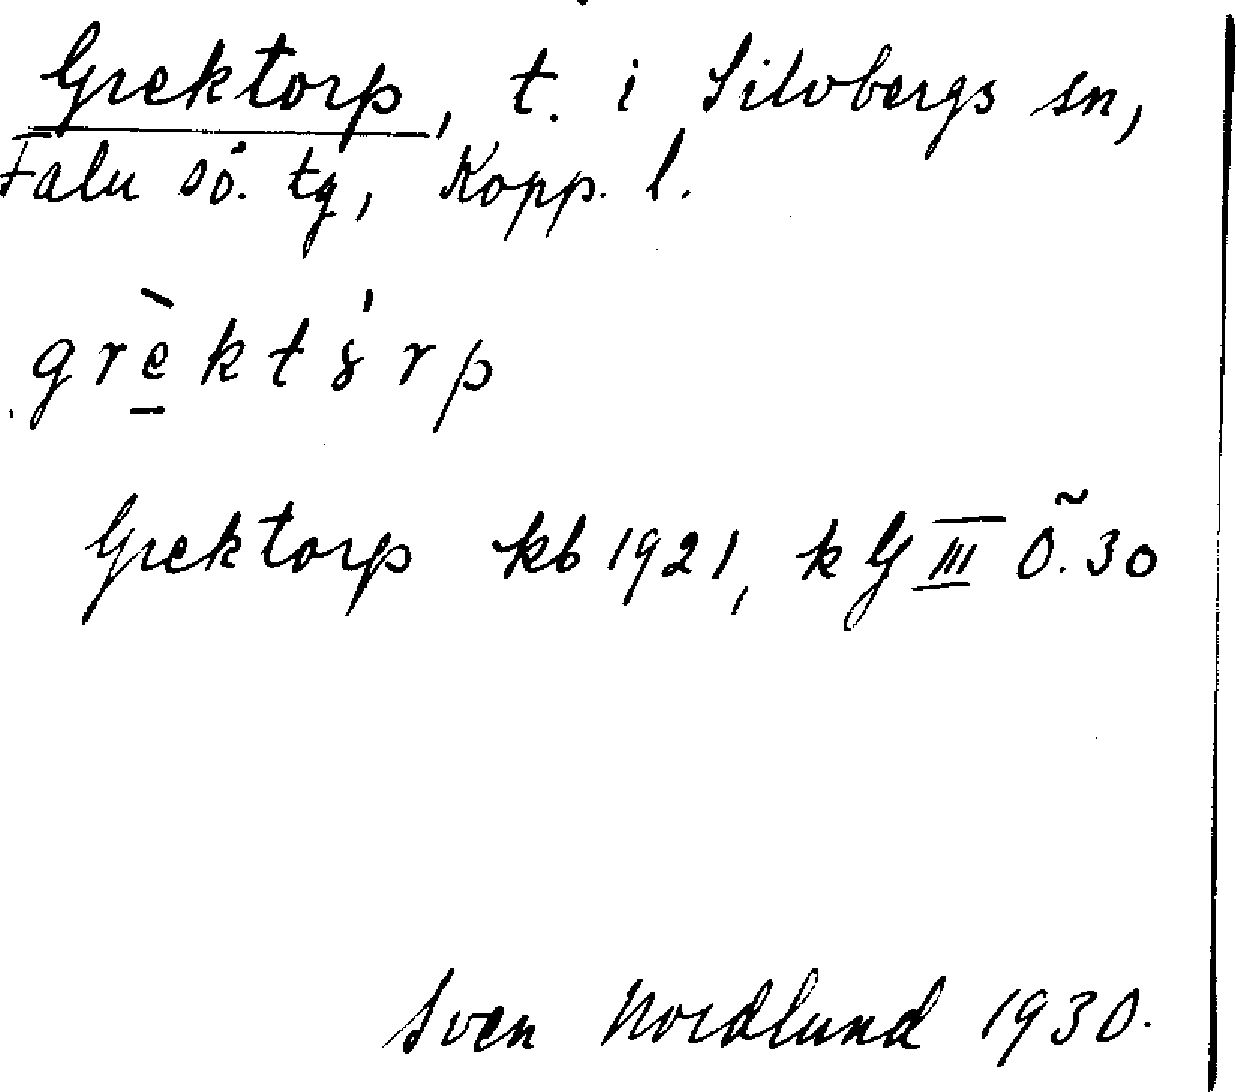 Grektorp, t. i Silvbergs sn,
Falu sö. tg, Kopp. l.
grè̱ktȣ́rp
Grektorp kb 1921, k G III Ö. 30
Sven Nordlund 1930.